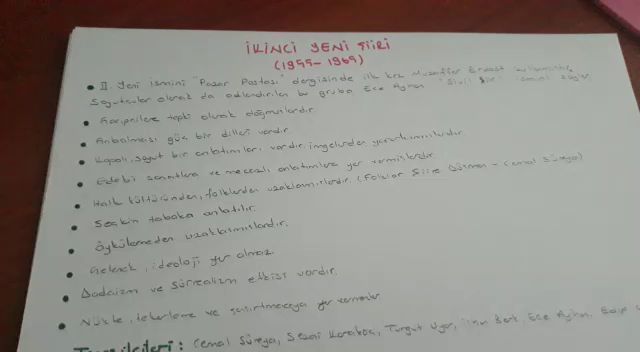 İKİNCİ YENİ ŞİİRİ
(1955-1965)
• II. Yeni ismini "Pazar Postası" dergisinde ilk kez Muzaffer Erdost kullanmıştır.
Soyutcular olarak da adlandırılan bu gruba Ece Ayhan "Sivil Şiir" ismini
• Garipçilere tepki olarak doğmuşlardır.
• Anlaşılması güç bir dilleri vardır.
• Kapalı, soyut bir anlatımları vardır, imgelerden yararlanmışlardır.
• Edebi sanatlara ve mecazlı anlatımlara yer vermişlerdir.
• Halk kültüründen, folklorden uzaklaşmışlardır. (Folklor Şiire Düşman - Cemal Süreya)
• Seçkin tabaka anlatılır.
• Öykülemeden uzaklaşmışlardır.
• Gelenek, ideoloji yer almaz.
• Dadaizm ve sürrealizm etkisi vardır.
• Nükte, tekerleme ve şaşırtmacaya yer vermezler
Temsilcileri: Cemal Süreya, Sezai Karakoç, Turgut Uyar, İlhan Berk, Ece Ayhan, Edip